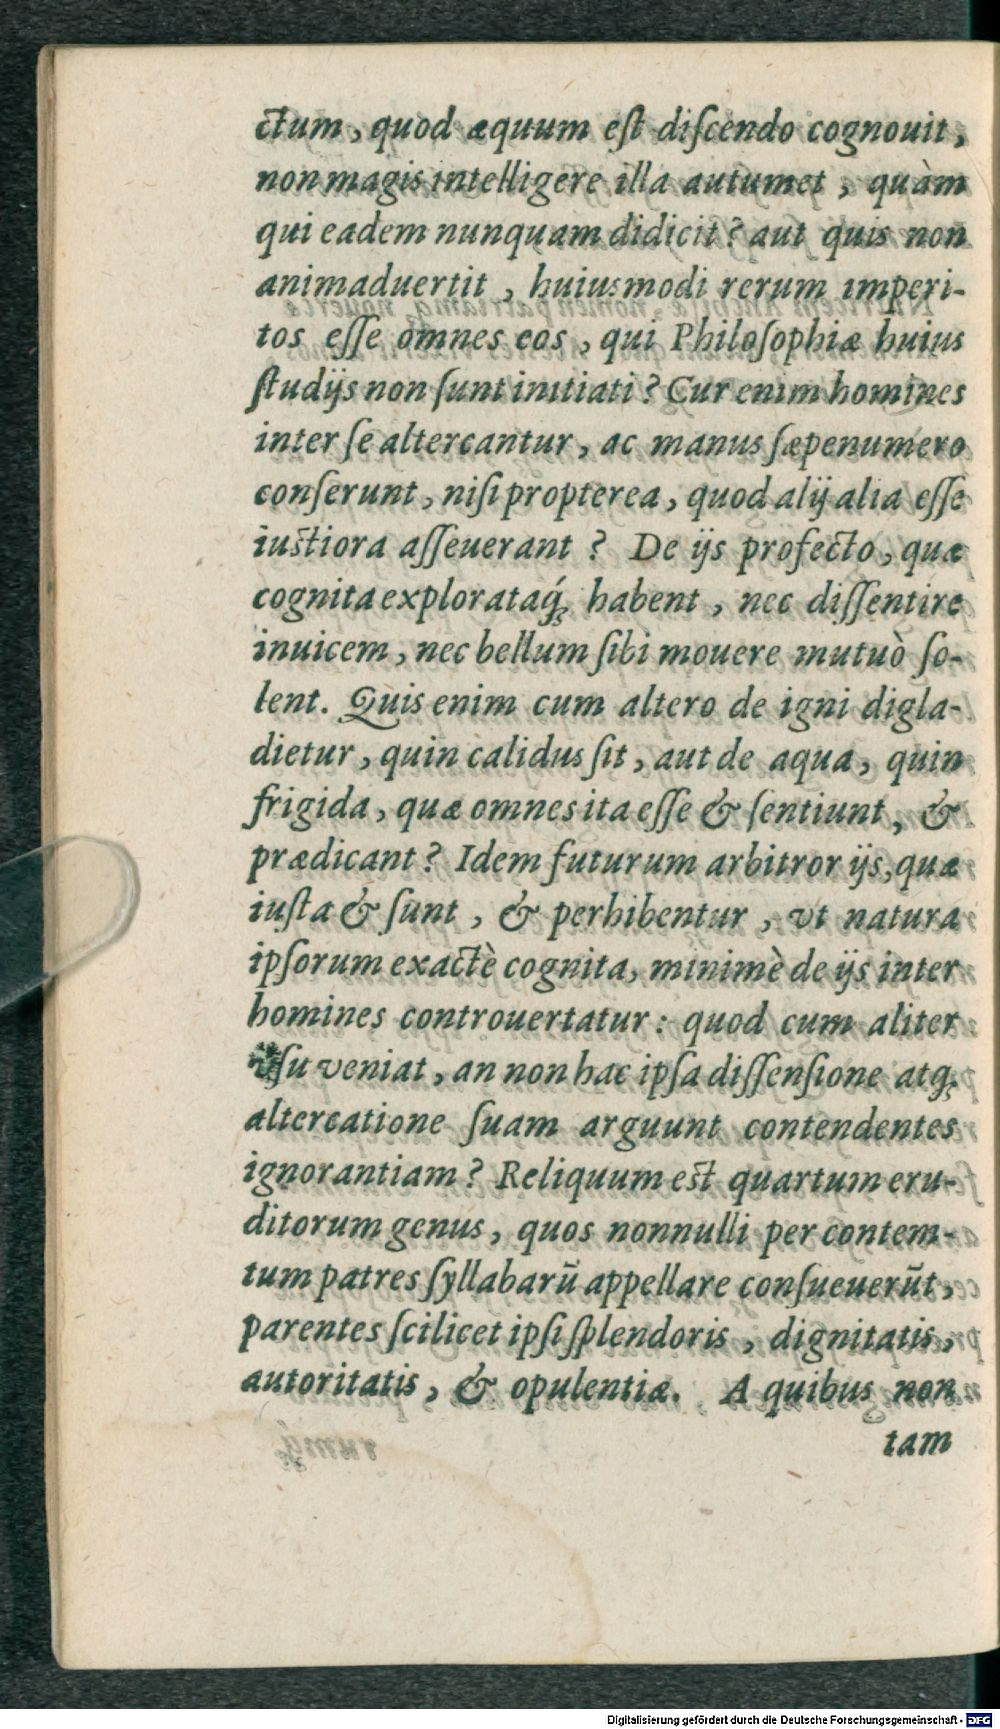 ctum, quod æquum eſt diſcendo cognouit,
non magis intelligere illa autumet, quàm
qui eadem nunquam didicit? aut quis non
animaduertit, huiusmodi rerum imperi-
tos eſſe omnes eos, qui Philoſophiæ huius
ſtudijs non ſunt initiati? Cur enim homines
inter ſe altercantur, ac manus ſæpenumero
conſerunt, niſi propterea, quod alij alia eſſe
iustiora aſſeuerant? De ijs profecto, quæ
cognita explorataq́; habent, nec diſſentire
inuicem, nec bellum ſibi mouere mutuò ſo-
lent. Quis enim cum altero de igni digla-
dietur, quin calidus ſit, aut de aqua, quin
frigida, quæ omnes ita eſſe & ſentiunt, &
prædicant? Idem futurum arbitror ijs, quæ
iuſta & ſunt, & perhibentur, vt natura
ipſorum exactè cognita, minimè de ijs inter
homines controuertatur: quod cum aliter
vſu veniat, an non hac ipſa diſſenſione atq;
altercatione ſuam arguunt contendentes
ignorantiam? Reliquum est quartum eru-
ditorum genus, quos nonnulli per contem-
tum patres ſyllabarū appellare conſueuerūt,
parentes ſcilicet ipſi ſplendoris, dignitatis,
autoritatis, & opulentiæ. A quibus non
tam
Digitalisierung gefördert durch die Deutsche Forschungsgemeinschaft - DFG